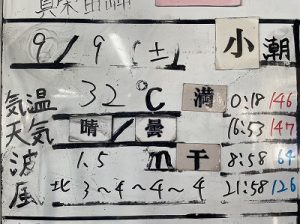 9/9(土) 小潮
気温 32℃ 満 0:18 146
天気 晴/曇 16:53 147
波 1.5m 干 8:58 64
風 北 3~4~4~4 21:58 126